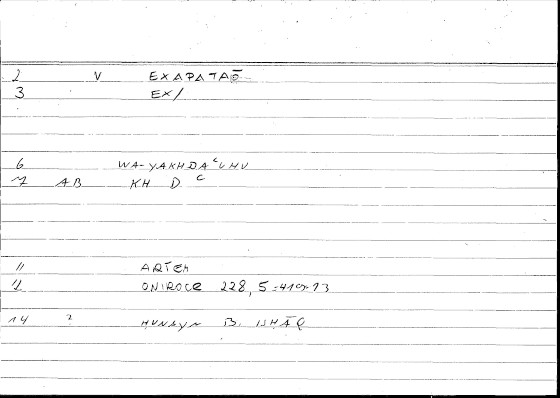 2 V EXAPATAŌ
3 EX/
6 WA-YAKHDAᶜUHU
7 AB KH D ᶜ
11 ARTEM
1 ONIROCR 228, 5 =419,13
14 2 ḤUNAYN B. ISHĀQ